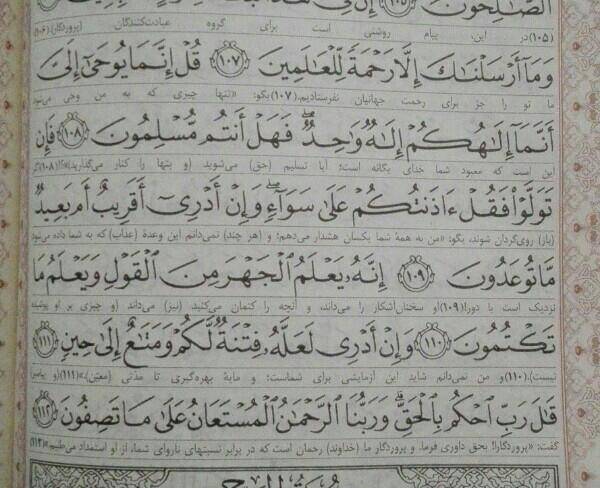 الصَّالِحُونَ ﴿١٠٥﴾ إِنَّ فِي هَٰذَا
(۱۰۵) در این، پیام روشنی است برای گروه عبادت‌کنندگان (پروردگار). (۱۰۶)
وَمَآ أَرْسَلْنَاكَ إِلَّا رَحْمَةً لِّلْعَالَمِينَ ﴿١٠٧﴾ قُلْ إِنَّمَا يُوحَىٰٓ إِلَىَّ
ما تو را جز برای رحمت جهانیان نفرستادیم. (۱۰۷) بگو: «تنها چیزی که به من وحی می‌شود
أَنَّمَآ إِلَٰهُكُمْ إِلَٰهٌ وَاحِدٌ ۖ فَهَلْ أَنتُم مُّسْلِمُونَ ﴿١٠٨﴾ فَإِن
این است که معبود شما خدای یگانه است؛ آیا تسلیم (حق) می‌شوید (و بتها را کنار می‌گذارید)؟» (۱۰۸) اگر
تَوَلَّوْا۟ فَقُلْ ءَاذَنتُكُمْ عَلَىٰ سَوَآءٍ ۖ وَإِنْ أَدْرِىٓ أَقَرِيبٌ أَم بَعِيدٌ
(باز) روی‌گردان شوند، بگو: «من به همهٔ شما یکسان هشدار می‌دهم؛ و (هر چند) نمی‌دانم این وعدهٔ (عذاب) که به شما داده می‌شود
مَّا تُوعَدُونَ ﴿١٠٩﴾ إِنَّهُۥ يَعْلَمُ ٱلْجَهْرَ مِنَ ٱلْقَوْلِ وَيَعْلَمُ مَا
نزدیک است یا دور! (۱۰۹) او سخنان آشکار را می‌داند، و آنچه را کتمان می‌کنید (نیز) می‌داند (و چیزی بر او پوشیده
تَكْتُمُونَ ﴿١١٠﴾ وَإِنْ أَدْرِى لَعَلَّهُۥ فِتْنَةٌ لَّكُمْ وَمَتَاعٌ إِلَىٰ حِينٍ ﴿١١١﴾
نیست). (۱۱۰) و من نمی‌دانم شاید این آزمایشی برای شماست؛ و مایهٔ بهره‌گیری تا مدّتی (معیّن).» (۱۱۱) (و پیامبر)
قَالَ رَبِّ ٱحْكُم بِٱلْحَقِّ ۗ وَرَبُّنَا ٱلرَّحْمَٰنُ ٱلْمُسْتَعَانُ عَلَىٰ مَا تَصِفُونَ ﴿١١٢﴾
گفت: «پروردگارا! بحق داوری فرما. و پروردگار ما (خداوند) رحمان است که در برابر نسبتهای ناروای شما، از او استمداد می‌طلبم.» (۱۱۲)